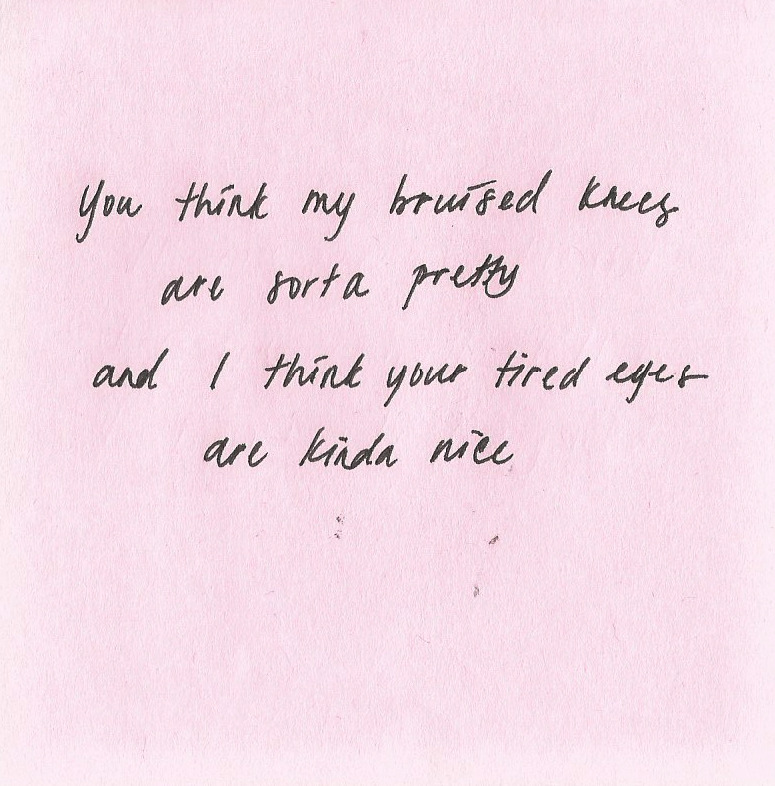 You think my bruised knees
are sorta pretty
and I think your tired eyes
are kinda nice